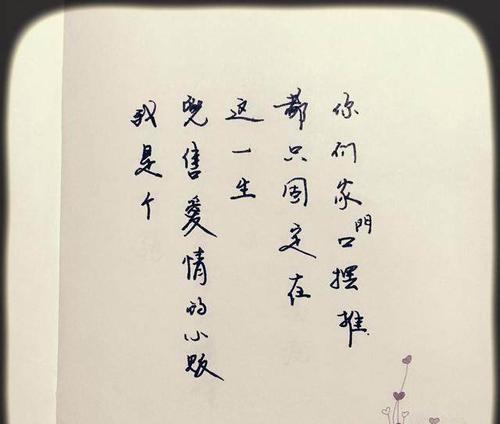 我是个
兜售愛情的小販
这一生
都只固定在
你们家門口摆摊